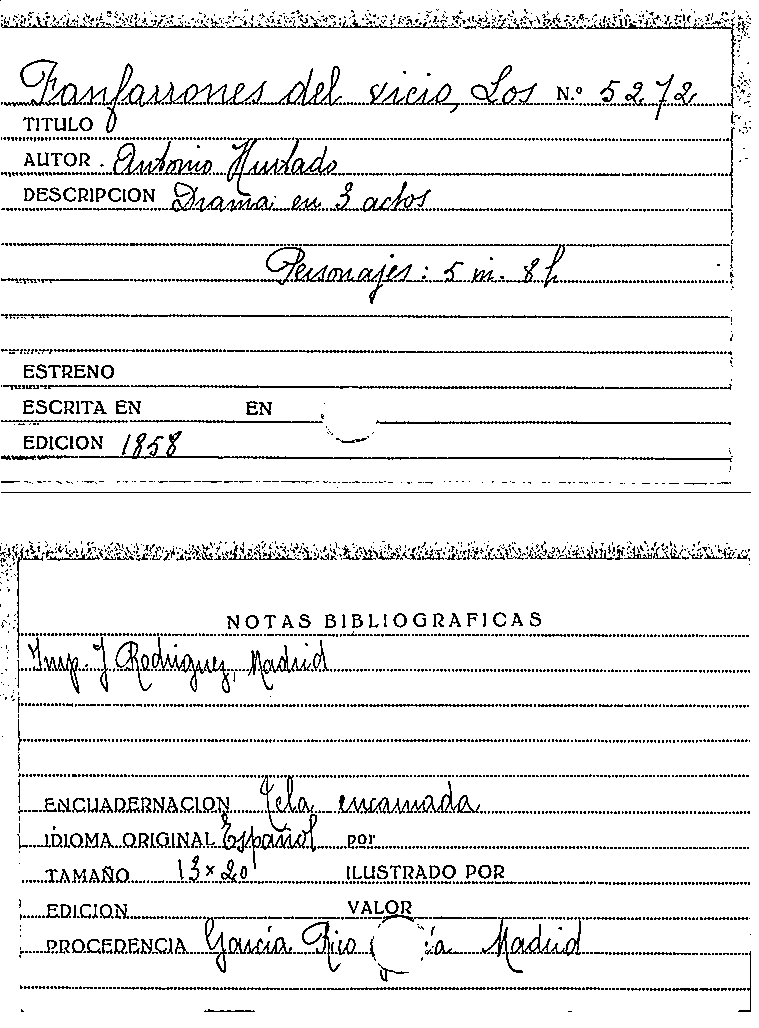 Fanfarrones del vicio, Los N.º 5272
TITULO
AUTOR . Antonio Hurtado
DESCRIPCION Drama en 3 actos
Personajes: 5 m. 8 h
ESTRENO
ESCRITA EN EN
EDICION 1858
NOTAS BIBLIOGRAFICAS
Imp. J Rodriguez, Madrid
ENCUADERNACION Tela encarnada
IDIOMA ORIGINAL Español por
TAMAÑO 13 x 20 ILUSTRADO POR
EDICION VALOR
PROCEDENCIA García Rico Madrid